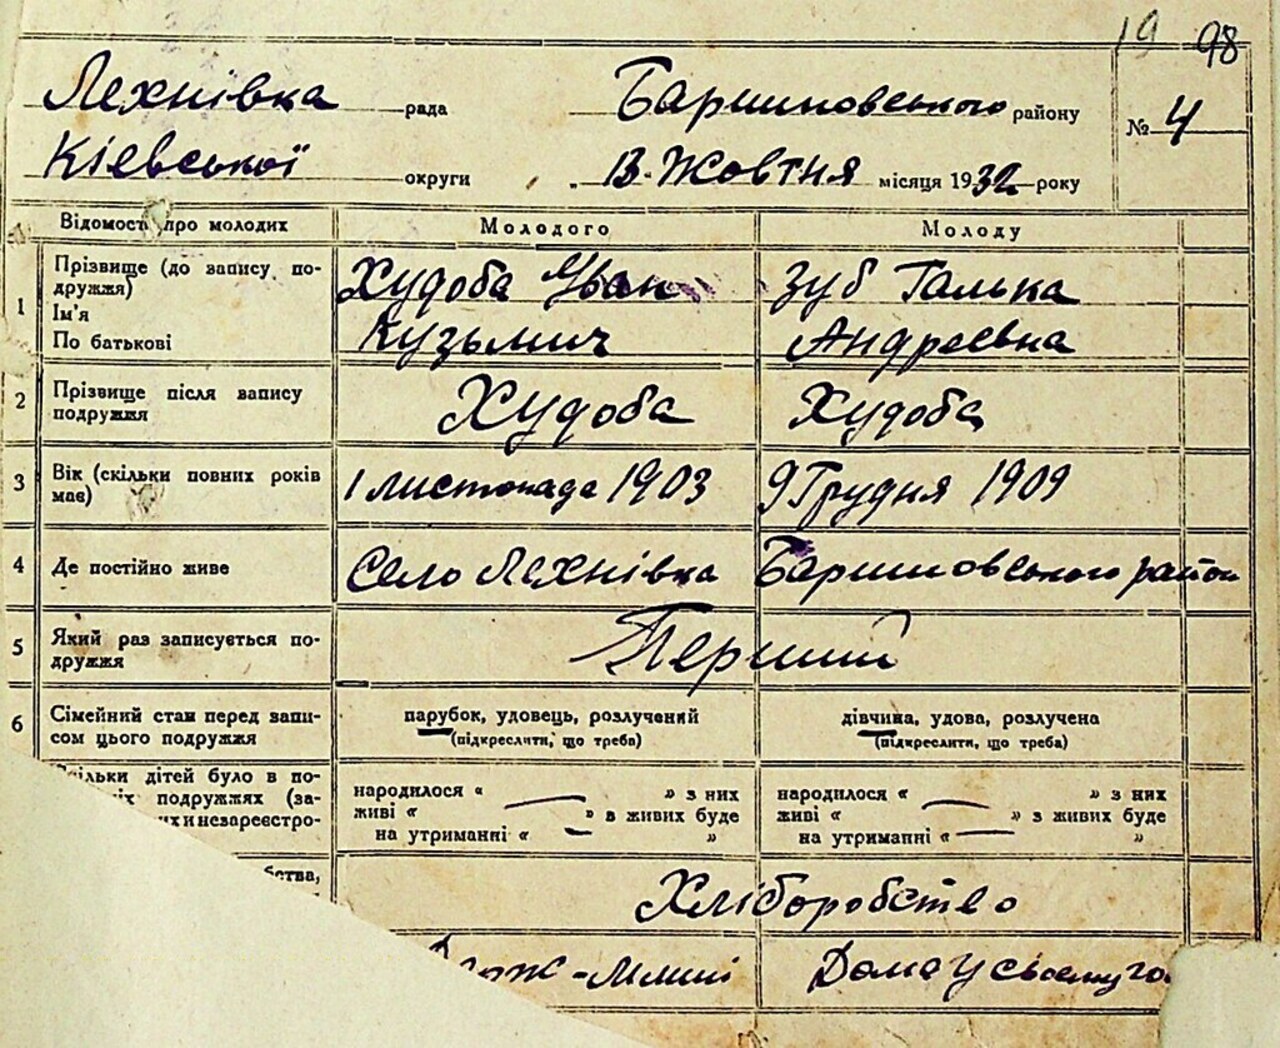 19 98
Лехнівка рада Баришовського району
№ 4
Кієвської округи 13 Жовтня місяця 1932 року
Відомості про молодих Молодого Молоду
1 Прізвище (до запису по-
дружжя)
Ім'я
По батькові
Худоба Іван
Кузьмич
Зуб Галька
Андреевна
2 Прізвище після запису
подружжя
Худоба Худоба
3 Вік (скільки повних років
має)
1 листопада 1903 9 Грудня 1909
4 Де постійно живе Село Лехнівка Баришовського район
5 Який раз записується по-
дружжя
Перший
6 Сімейний стан перед запи-
сом цього подружжя
парубок, удовець, розлучений
(підкреслити, що треба)
дівчина, удова, розлучена
(підкреслити, що треба)
кільки дітей було в по-
іх подружжях (за-
их и незареєстро-
народилося « — » з них
живі « » в живих буде
на утриманні « — »
народилося « — » з них
живі « » з живих буде
на утриманні « — »
бства,
Хліборобство
Дома у своему го